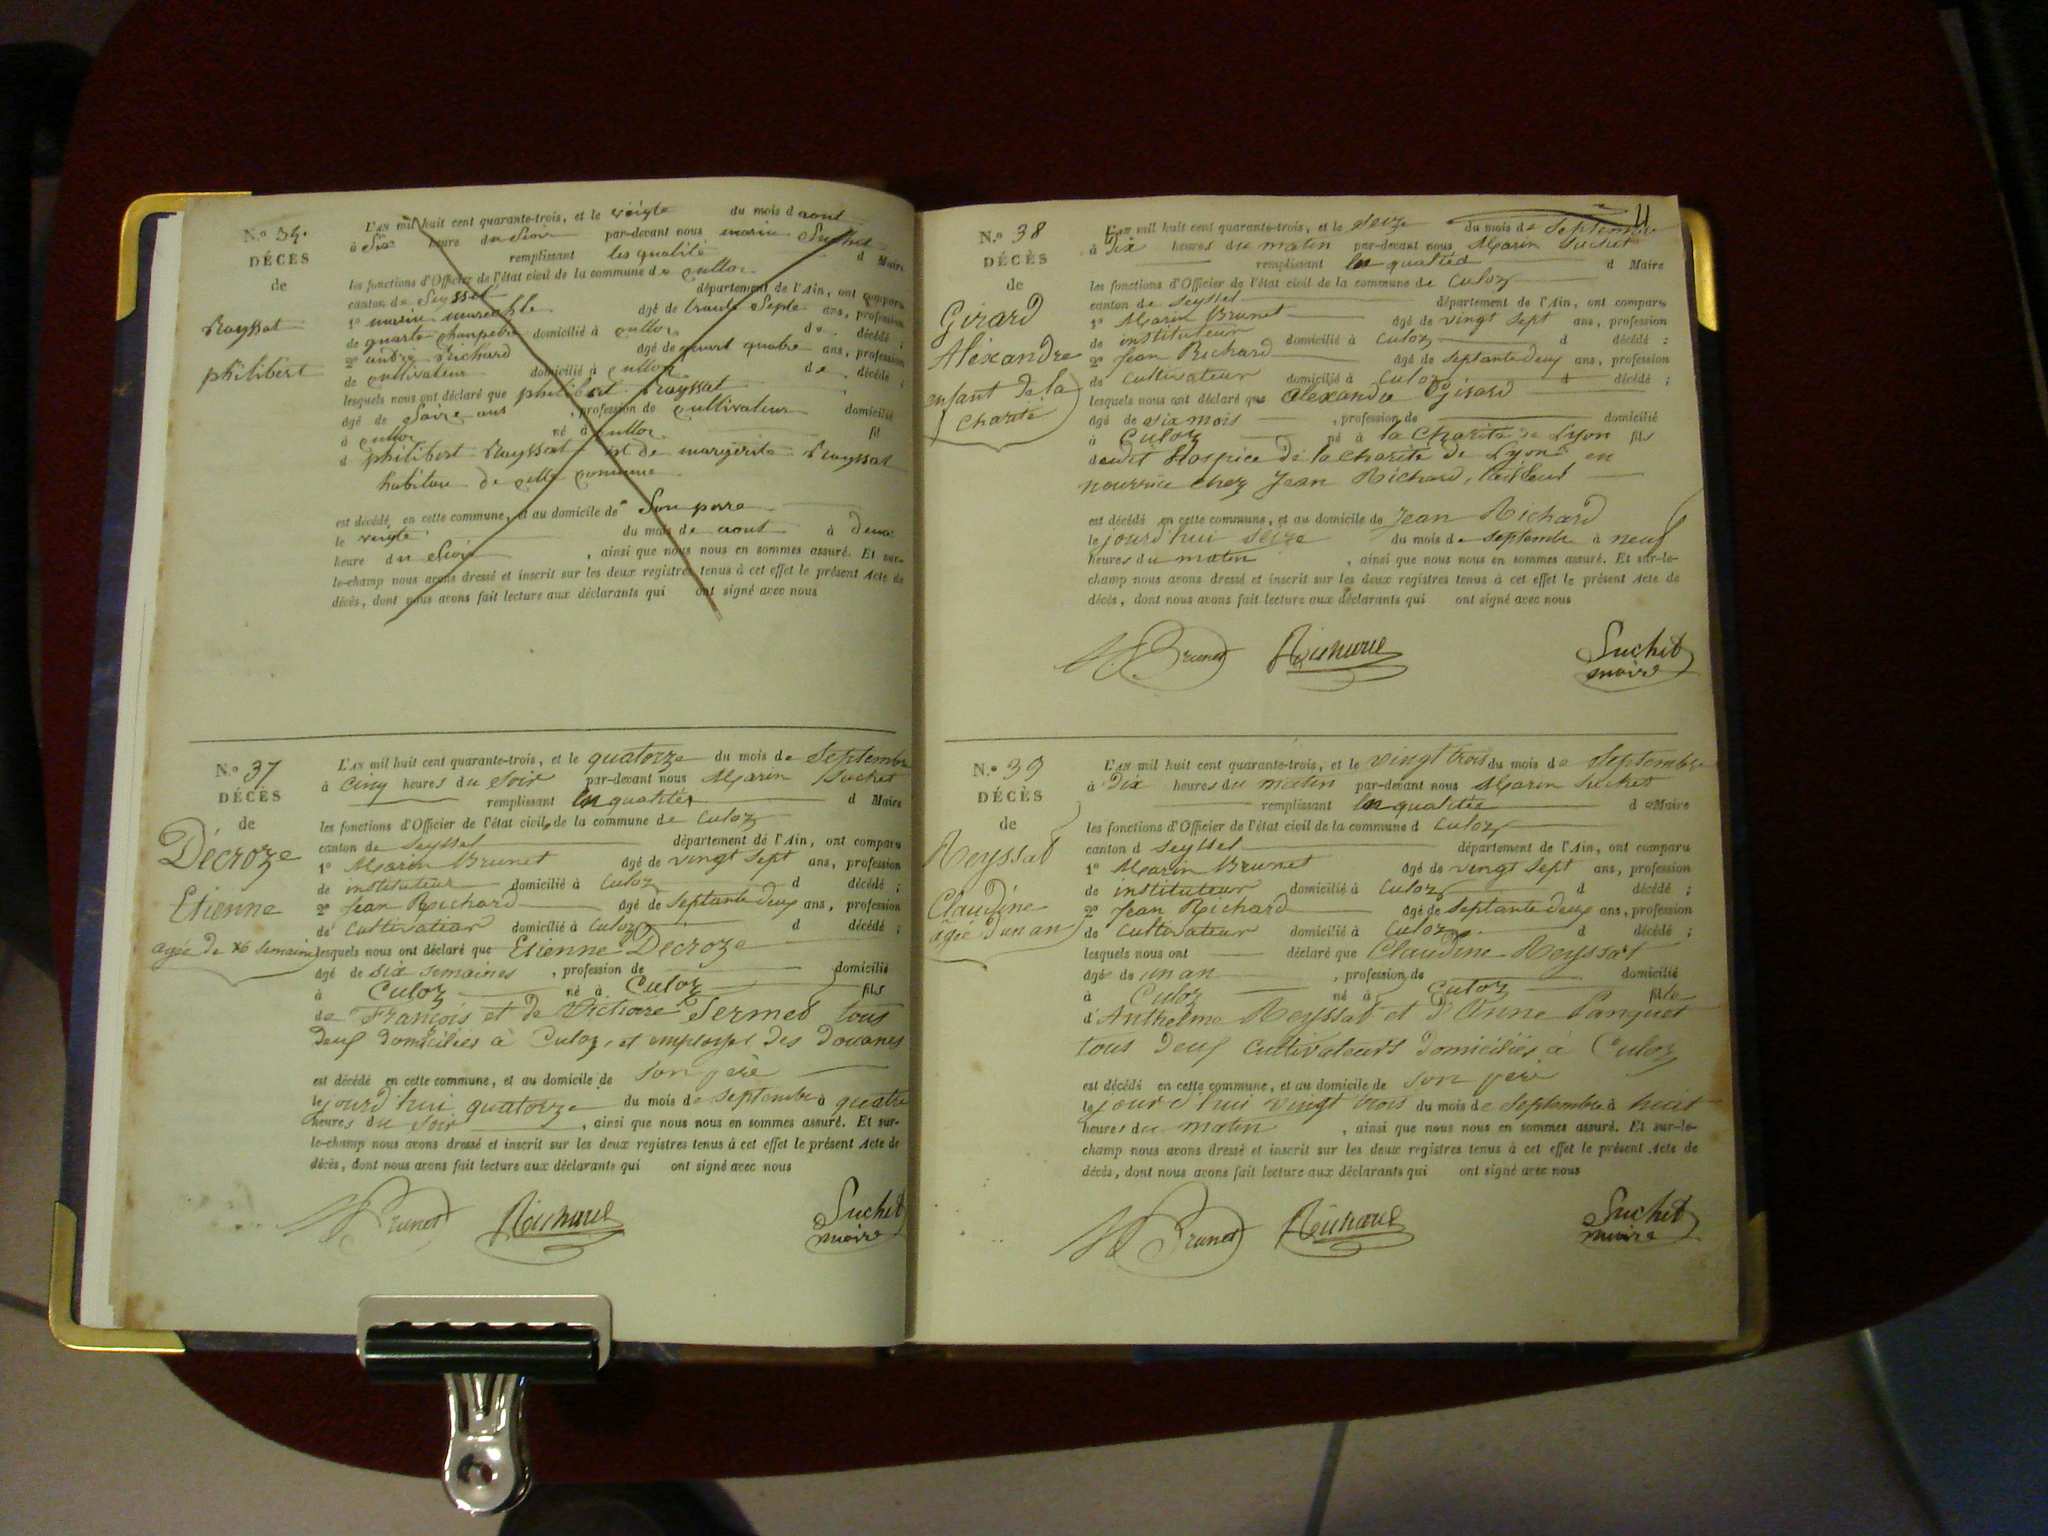 N.º 35.
DÉCÈS
de
Rayssat
philibert
L'AN mil huit cent quarante-trois, et le veigte du mois d aout
à Six heure du Soir par-devant nous marin Suchet
remplissant les qualité d Maire
les fonctions d'Officier de l'état civil de la commune de Culloz
canton de Seyssel département de l'Ain, ont comparu
1º marin agé de trante Septe ans, profession
de garte champetre domicilié à Culloz d décédé ;
2º andré Richard agé de quart quatre ans, profession
de Cultivateur domicilié à Culloz de décédé ;
lesquels nous ont déclaré que philibert Rayssat
agé de ans, profession de Cultivateur domicilié
à Culloz né à Culloz fil
d philibert Rayssat et de margerite Rayssat
habitan de cette Commune
est décédé en cette commune, et au domicile de Son pere
le veigte du mois de aout à deux
heure du Soir, ainsi que nous nous en sommes assuré. Et sur-
le-champ nous avons dressé et inscrit sur les deux registres tenus à cet effet le présent Acte de
décès, dont nous avons fait lecture aux déclarants qui ont signé avec nous
N.º 37
DÉCÈS
de
Décroze
Etienne
agée de x6 semaines
L'AN mil huit cent quarante-trois, et le quatorze du mois de Septembre
à cinq heures du soir par-devant nous Marin Suchet
remplissant les qualités d Maire
les fonctions d'Officier de l'état civil de la commune de Culoz
canton de Seyssel département de l'Ain, ont comparu
1º Marin Brunet agé de vingt sept ans, profession
de instituteur domicilié à Culoz d décédé ;
2º Jean Richard agé de septante deux ans, profession
de cultivateur domicilié à Culoz d décédé ;
lesquels nous ont déclaré que Etienne Decroze
agé de six semaines, profession de domicilié
à Culoz né à Culoz fils
de François et de Victoire Sermet tous
deux domiciliés à Culoz, et employé des Douanes
est décédé en cette commune, et au domicile de son père
le jourd'hui quatorze du mois de septembre à quatre
heures du soir, ainsi que nous nous en sommes assuré. Et sur-
le-champ nous avons dressé et inscrit sur les deux registres tenus à cet effet le présent Acte de
décès, dont nous avons fait lecture aux déclarants qui ont signé avec nous
M Brunet Richard Suchet
maire
11
N.º 38
DÉCÈS
de
Girard
Aléxandre
enfant de la
Charité
L'AN mil huit cent quarante-trois, et le seize du mois de Septembre
à Dix heures du matin par-devant nous Marin Suchet
remplissant les qualités d Maire
les fonctions d'Officier de l'état civil de la commune de Culoz
canton de Seyssel département de l'Ain, ont comparu
1º Marin Brunet agé de vingt sept ans, profession
de instituteur domicilié à Culoz d décédé ;
2º Jean Richard agé de septante deux ans, profession
de cultivateur domicilié à Culoz d décédé ;
lesquels nous ont déclaré que Alexandre Girard
agé de six mois, profession de domicilié
à Culoz né à la Charité de Lyon fils
dudit Hospice de la Charité de Lyon en
nourrice chez Jean Richard, tailleur
est décédé en cette commune, et au domicile de Jean Richard
le jourd'hui seize du mois de septembre à neuf
heures du matin, ainsi que nous nous en sommes assuré. Et sur-le-
champ nous avons dressé et inscrit sur les deux registres tenus à cet effet le présent Acte de
décès, dont nous avons fait lecture aux déclarants qui ont signé avec nous
M Brunet Richard Suchet
maire
N.º 39
DÉCÈS
de
Reyssat
Claudine
agée d'un an
L'AN mil huit cent quarante-trois, et le vingt trois du mois de Septembre
à Dix heures du matin par-devant nous Marin Suchet
remplissant les qualités d Maire
les fonctions d'Officier de l'état civil de la commune d Culoz
canton d Seyssel département de l'Ain, ont comparu
1º Marin Brunet agé de vingt sept ans, profession
de instituteur domicilié à Culoz d décédé ;
2º Jean Richard agé de septante deux ans, profession
de cultivateur domicilié à Culoz d décédé ;
lesquels nous ont déclaré que Claudine Reyssat
agé de un an, profession de domicilié
à Culoz né à Culoz fille
d'Anthelme Reyssat et d'Anne Panquet
tous deux cultivateurs domiciliés à Culoz
est décédé en cette commune, et au domicile de son père
le jourd'hui vingt trois du mois de septembre à huit
heures du matin, ainsi que nous nous en sommes assuré. Et sur-le-
champ nous avons dressé et inscrit sur les deux registres tenus à cet effet le présent Acte de
décès, dont nous avons fait lecture aux déclarants qui ont signé avec nous
M Brunet Richard Suchet
maire